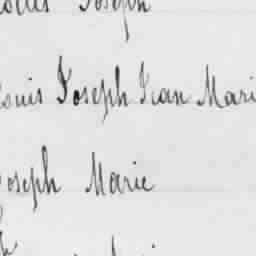 Louis Joseph
Louis Joseph Jean Mari
Joseph Marie